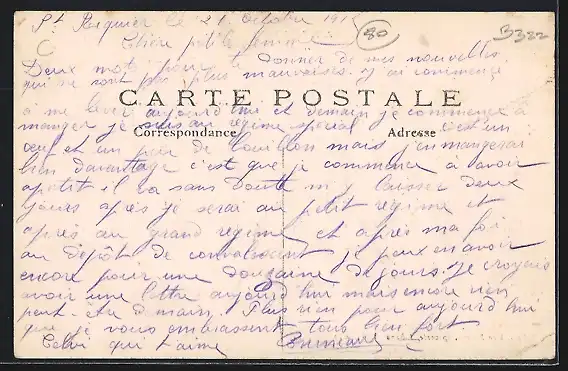 St Riquier le 21 Octobre 1915
80
3322
C
Chère p'tite femme
Deux mots pour te donner de mes nouvelles
qui ne sont pas plus mauvaises. J'ai commencé
CARTE POSTALE
à me lever aujourd'hui et demain je commence à
manger je suis au régime spécial c'est un
Correspondance
Adresse
œuf et un peu de bouillon mais j'en mangerai
bien davantage c'est que je commence à avoir
apétit il va sans doute m'y laisser deux
jours après je serai au petit régime et
après au grand régime et après ma foi
au dépôt de convalescent je peux en avoir
encore pour une douzaine de jours. Je croyais
avoir une lettre aujourd'hui mais encore rien
peut-être demain. Plus rien pour aujourd'hui
que je vous embrassent tous bien fort
Celui qui t'aime